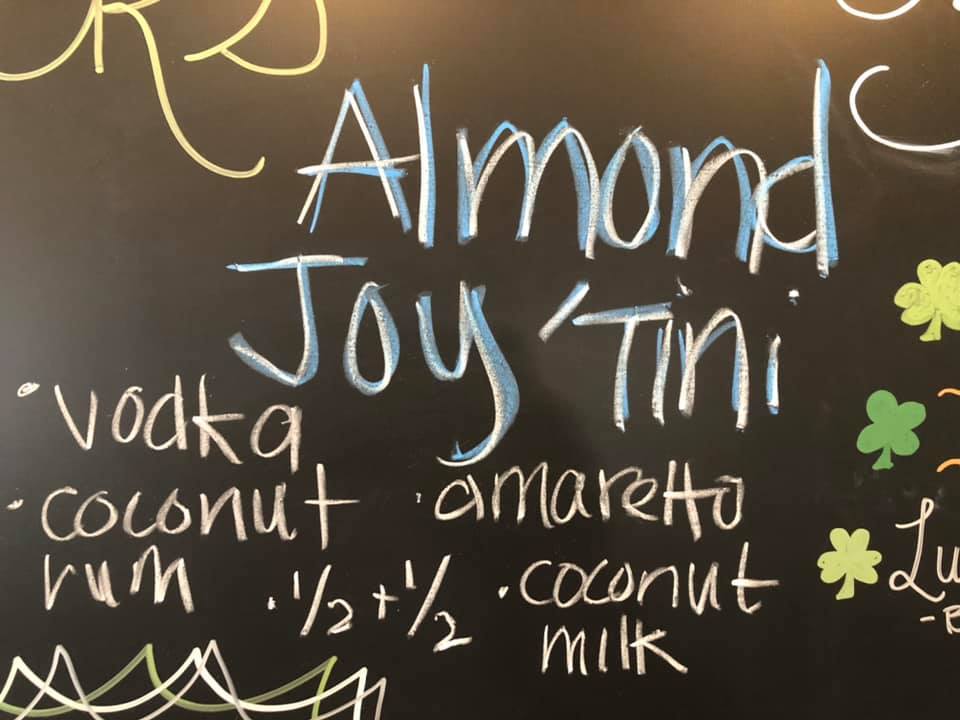 RS
Almond
Joy 'Tini
• vodka
• coconut rum
• amaretto
• 1/2 + 1/2
• coconut milk